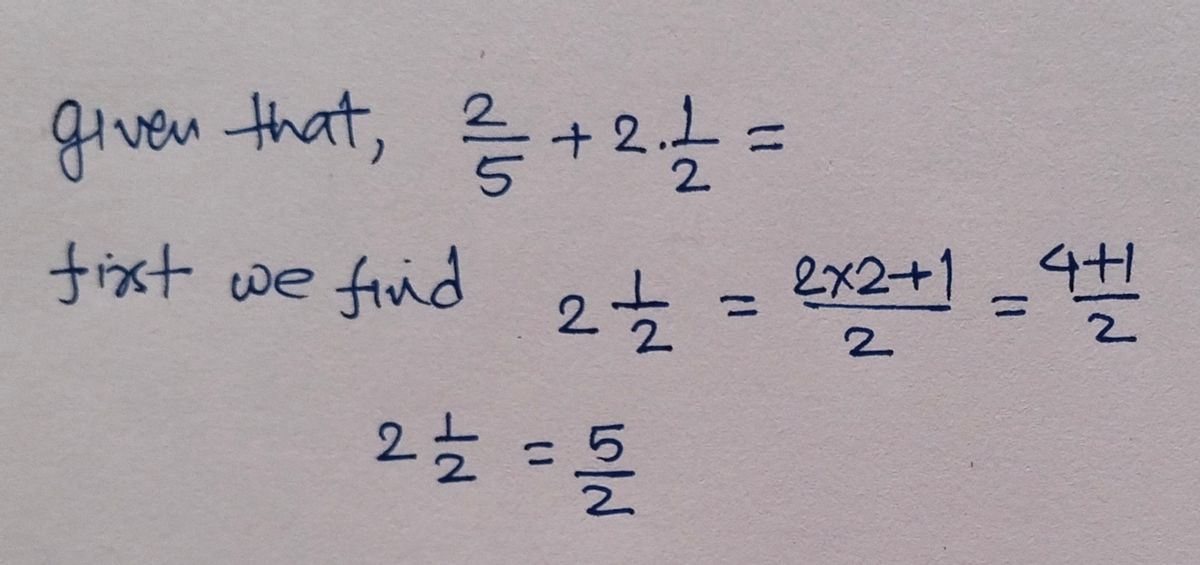 given that, 2/5 + 2.1/2 =
first we find 2 1/2 = 2x2+1/2 = 4+1/2
2 1/2 = 5/2